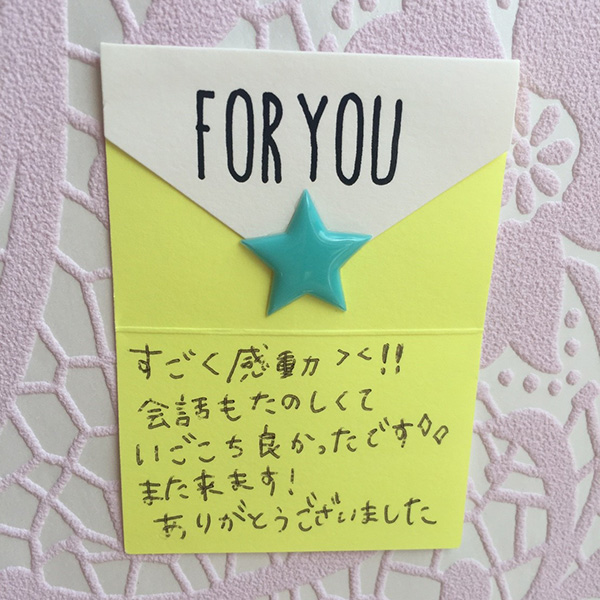 FOR YOU
すごく感動><!!
会話もたのしくて
いごこち良かったです◇◇
また来ます!
ありがとうございました